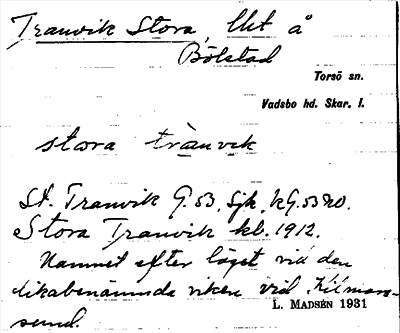 Tranvik Stora, lht å
Bölstad
Torsö sn.
Vadsbo hd. Skar. l.
stora tranvik
St. Tranvik G. 53, Sjk, KG. 53 NO.
Stora Tranvik kb. 1912.
Namnet efter läget vid den
likabenämnda viken vid Kilmar-
sund.
L. MADSÉN 1931